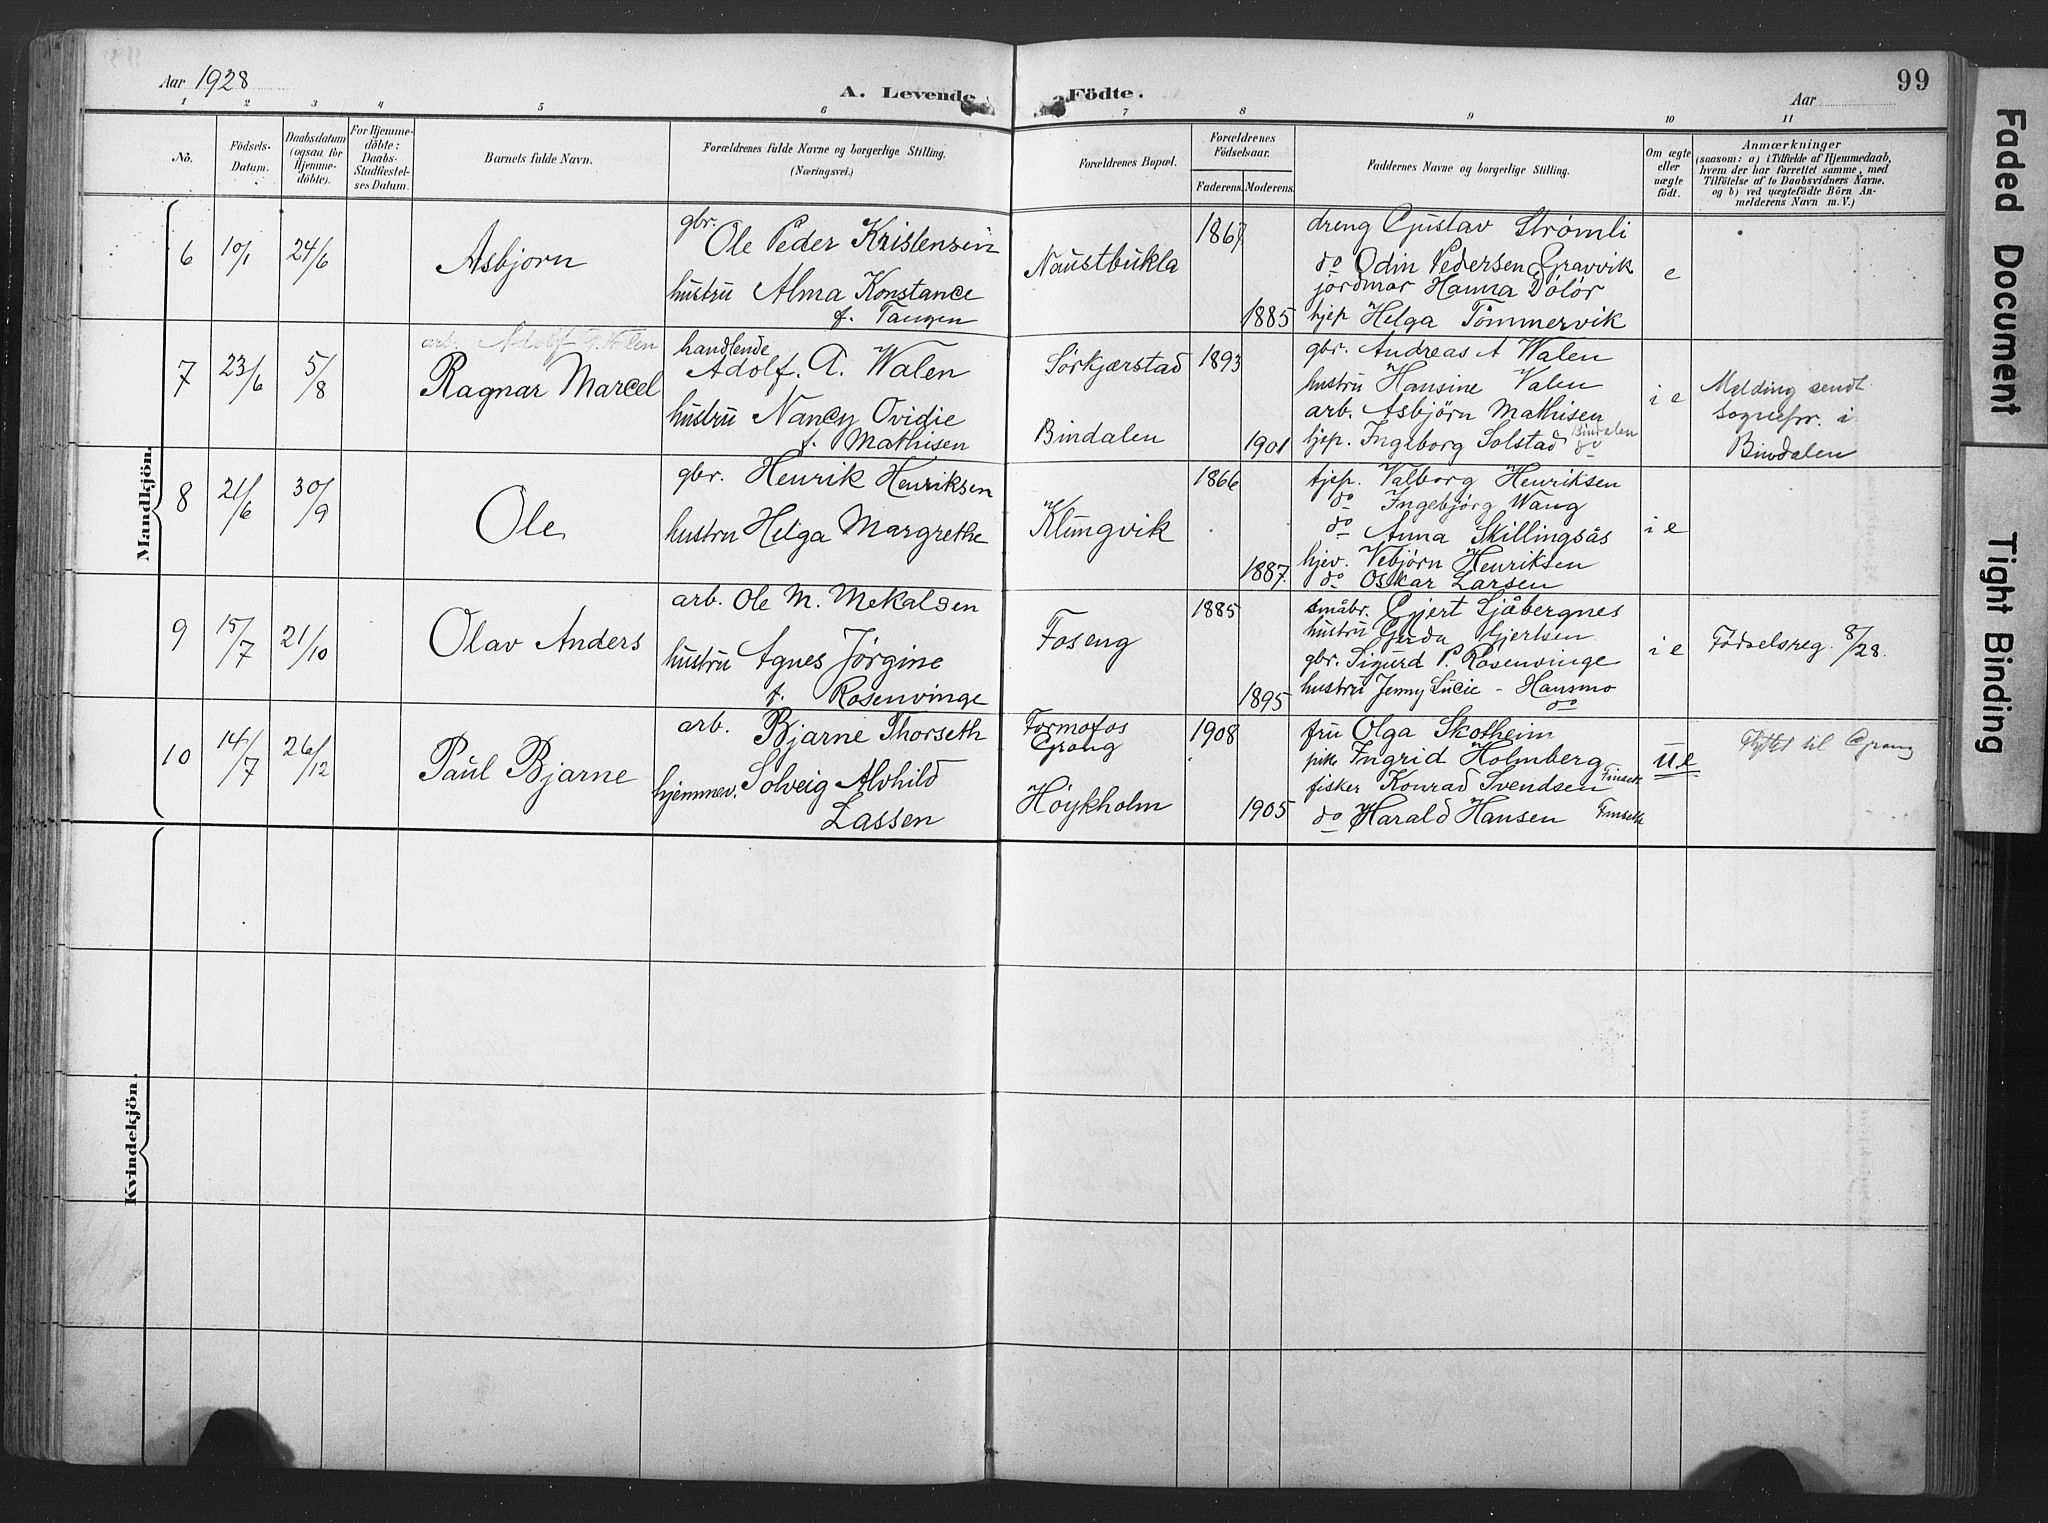 Aar 1928
A. Levende Födte.
Aar
99
1 2 3 4 5 6 7 8 9 10 11
No.
Födsels-Datum.
Daabsdatum (ogsaa for Hjemme-döbte).
For Hjemme-döbte: Daabs-Stadfæstel-ses Datum.
Barnets fulde Navn.
Forældrenes fulde Navne og borgerlige Stilling.
(Næringsvei.)
Forældrenes Bopæl.
Forældrenes Födselsaar.
Faderens. Moderens.
Faddernes Navne og borgerlige Stilling.
Om ægte eller uægte födt.
Anmærkninger
(saasom: a) i Tilfælde af Hjemmedaab,
hvem der har forrettet samme, med
Tilföielse af to Daabsvidners Navne.
og b) ved uægtefödte Börn An-
melderens Navn m. V.)
Mandkjön.
6 10/1 24/6
Asbjørn
gbr. Ole Peder Kristensen
hustru Alma Konstance
f. Tangen
Naustbukla
1867
1885
dreng Gustav Strømli
do Odin Pedersen Gravvik
jordmor Hanna Dolør
hjep Helga Tømmervik
e
7 23/6 5/8
arb. Adolf A. Walen
Ragnar Marcel
handlende
Adolf. A. Walen
hustru Nancy Ovidie
f. Mathisen
Sørkjærstad
Bindalen
1893
1901
gbr. Andreas A Walen
hustru Hansine Valen
arb. Asbjörn Mathisen
hjep. Ingeborg Solstad Bindalen
do
i e
Melding sendt
sognepr. i
Bindalen
8 21/6 30/9
Ole
gbr. Henrik Henriksen
hustru Helga Margrethe
Klungvik
1866
1887
tjep. Valborg Henriksen
do Ingebjørg Wang
do Anna Skillingsås
hjev. Vebjørn Henriksen
do Oskar Larsen
i e
9 15/7 21/10
Olav Anders
arb. Ole M. Mekalsen
hustru Agnes Jørgine
f. Rosenvinge
Foseng
1885
1895
småbr. Gjert Sjåbergnes
hustru Gerda Gjertsen
gbr. Sigurd P. Rosenvinge
hustru Jenny Lucie - Hansmo
do
i e
Fødselsreg. 8/28.
10 14/7 26/12
Paul Bjarne
arb. Bjarne Thorseth
hjemmev. Solveig Alvhild
Lassen
Formofos
Grong
Høykholm
1908
1905
fru Olga Skotheim
pike Ingrid Holmberg
fisker Konrad Svendsen
do Harald Hansen
u e
Flyttet til Grong
Kvindekjön.
Faded Document
Tight Binding